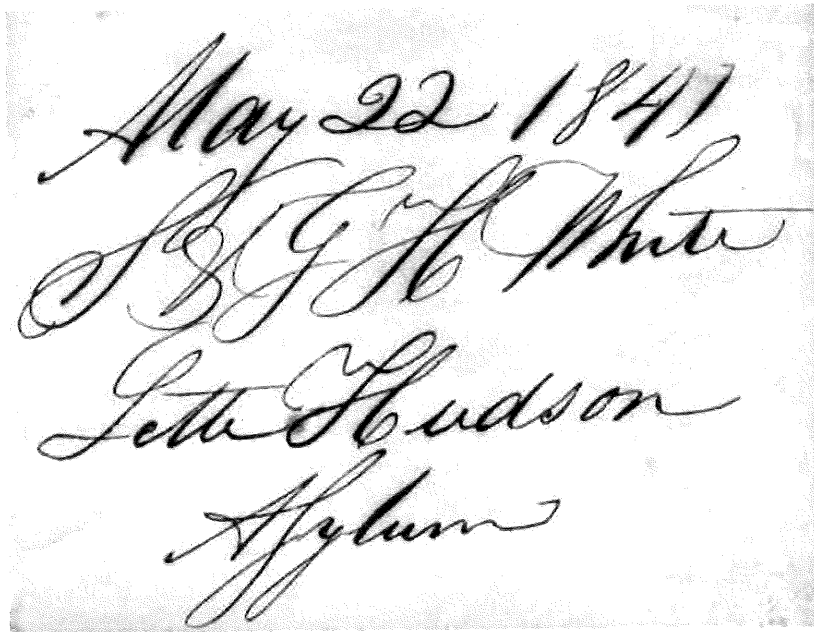 May 22 1841
S V G H White
Lette Hudson
Asylum